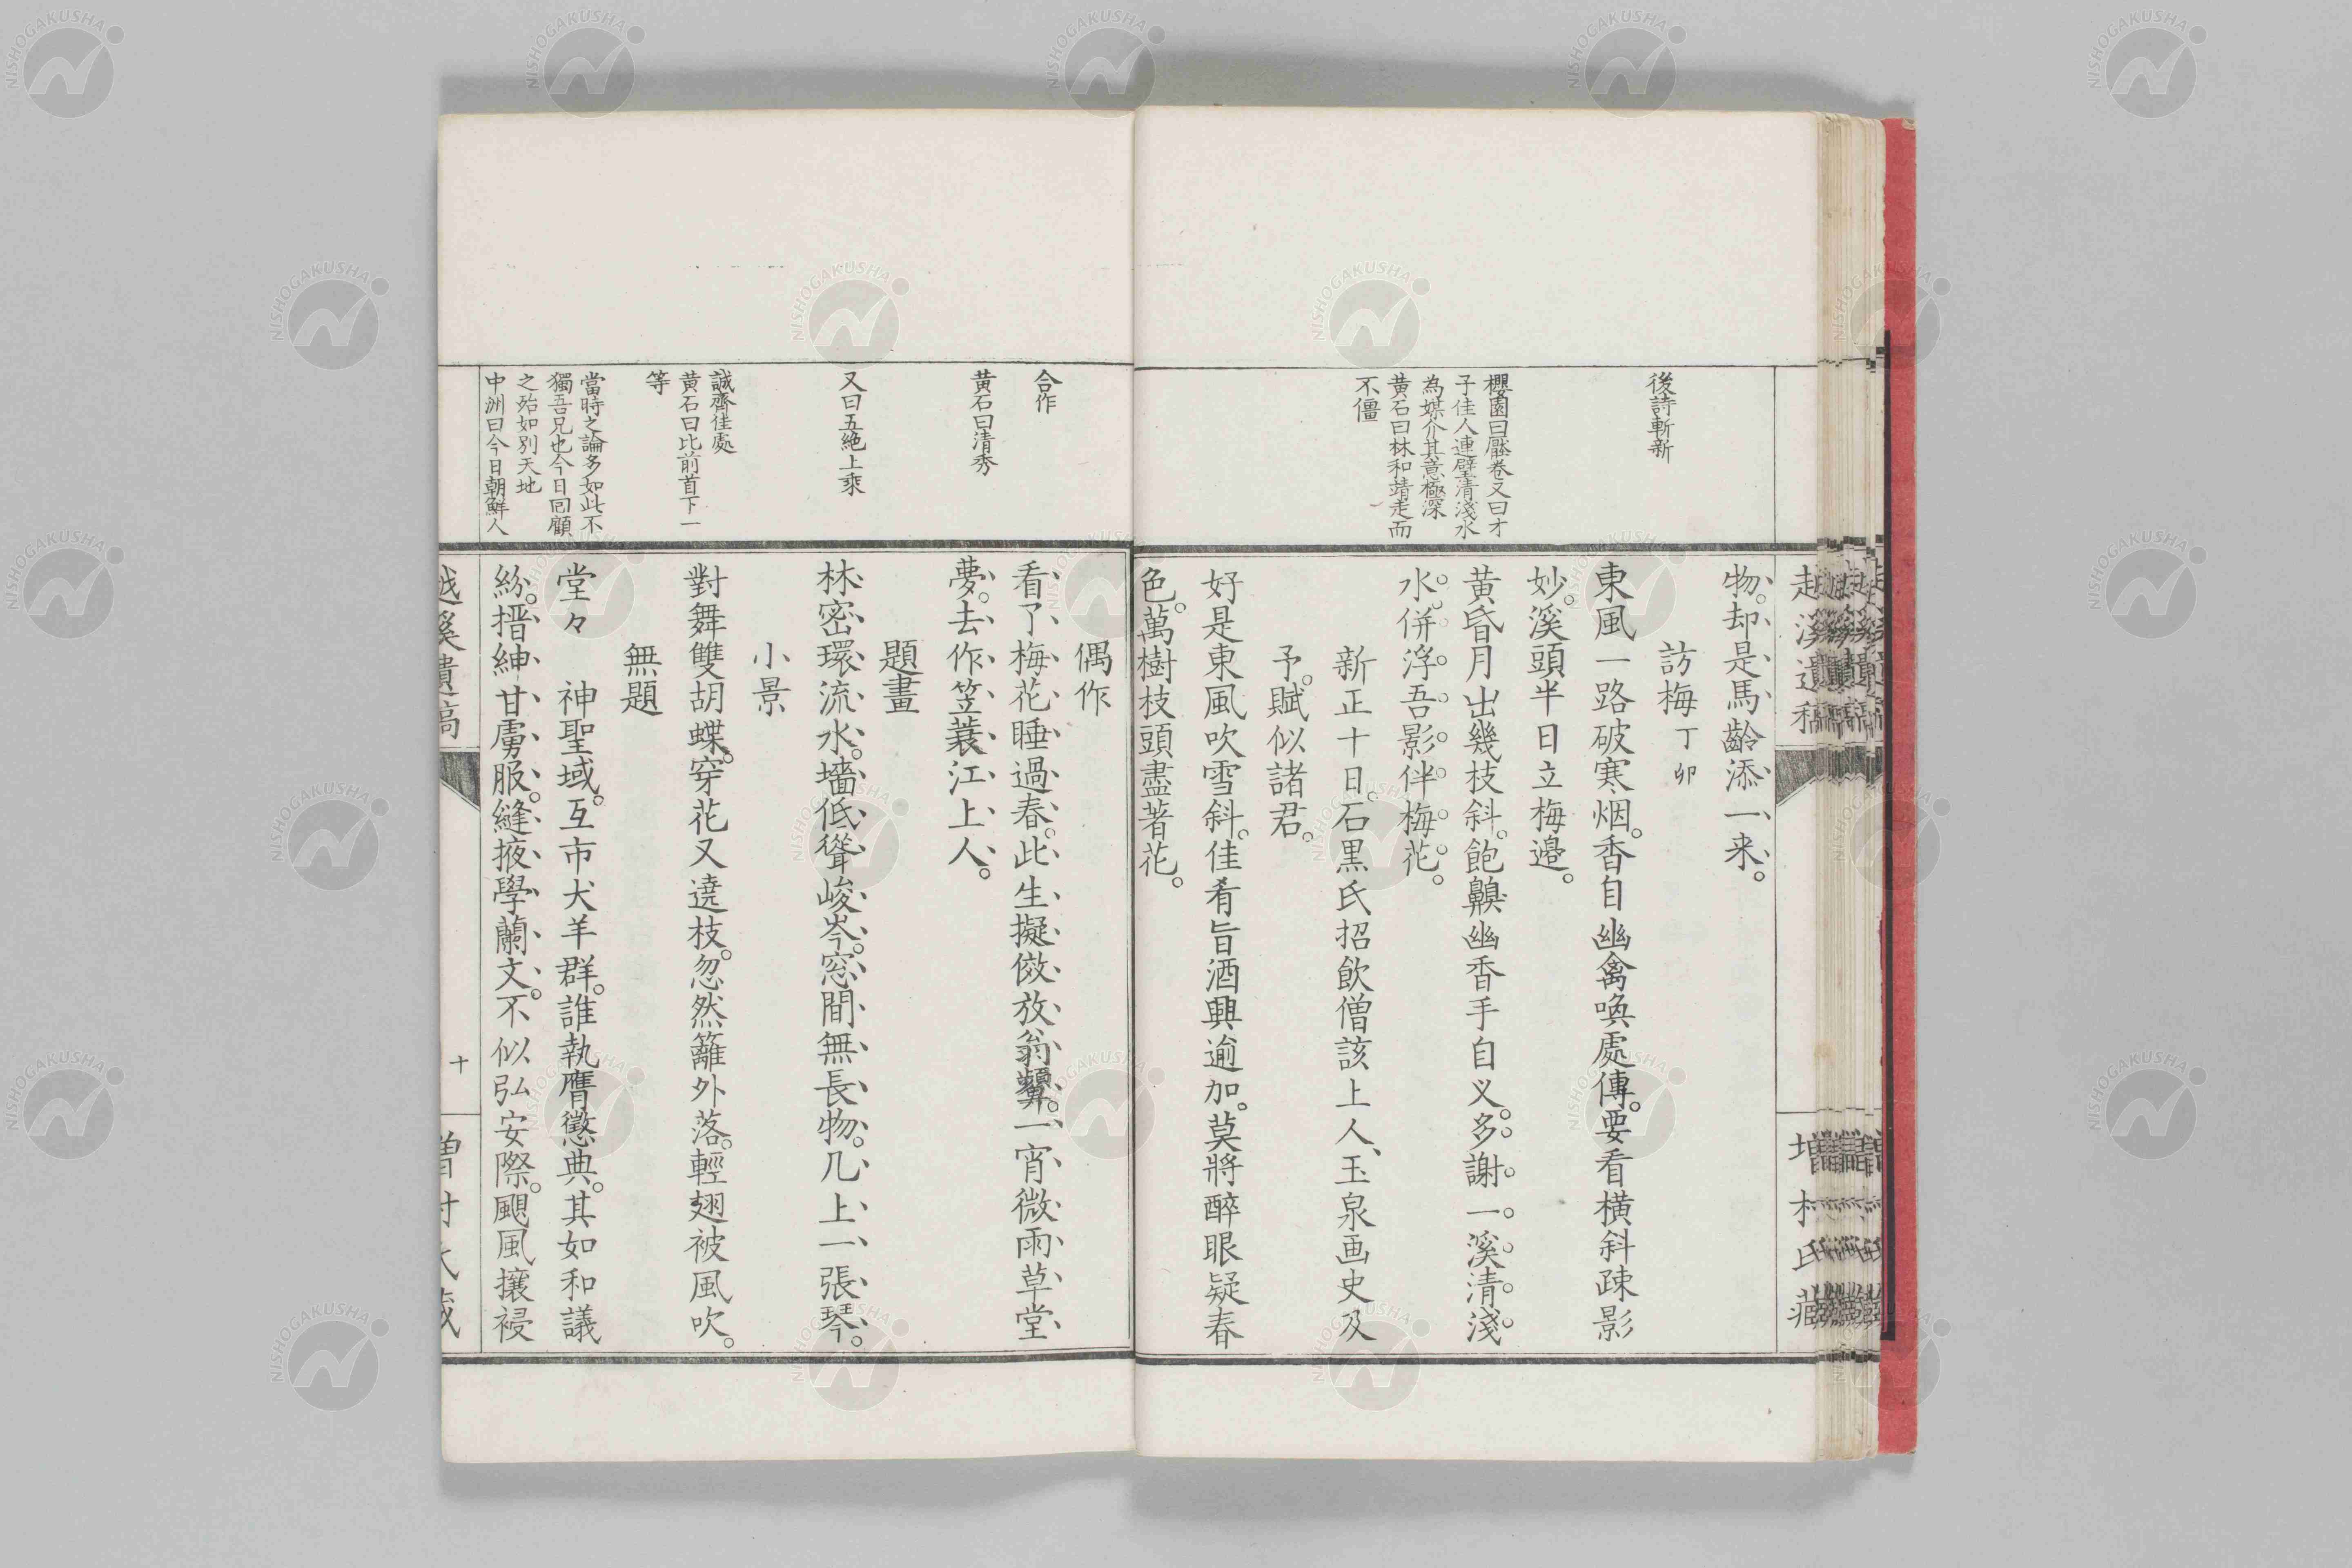 後詩斬新
櫻園曰壓卷又曰才
子佳人連璧清淺水
為媒介其意極深
黄石曰林和靖走而
不僵
物。却是馬齡添一来。
訪梅丁卯
東風一路破寒烟。香自幽禽喚處傳。要看横斜疎影
妙。溪頭半日立梅邉。
黄昏月出幾枝斜。飽齅幽香手自义。多謝一溪清淺
水。併浮吾影伴梅花。
新正十日。石黒氏招飲僧該上人、玉泉画史及
予。賦似諸君。
好是東風吹雪斜。佳肴旨酒興逾加。莫將醉眼疑春
色。萬樹枝頭盡著花。
合作
黄石曰清秀
又曰五絶上乘
誠齊佳處
黄石曰比前首下一
等
當時之論多如此不
獨吾兄也今日回顧
之殆如別天地
中洲曰今日朝鮮人
偶作
看了梅花睡過春。此生擬傚放翁顰。一宵微雨草堂
夢。去作笠蓑江上人。
題畫
林密環流水。墻低聳峻岑。窓間無長物。几上一張琴。
小景
對舞雙胡蝶。穿花又遶枝。忽然籬外落。輕翅被風吹。
無題
堂々 神聖域。互市犬羊群。誰執膺懲典。其如和議
紛。搢紳甘虜服。縫掖學蘭文。不似弘安際。颶風攘祲
越溪遺稿
十
増村氏蔵
NISHOGAKUSHA